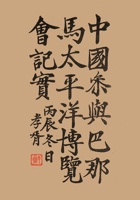 中國參與巴那
馬太平洋博覽
會記實
丙辰冬日
孝胥